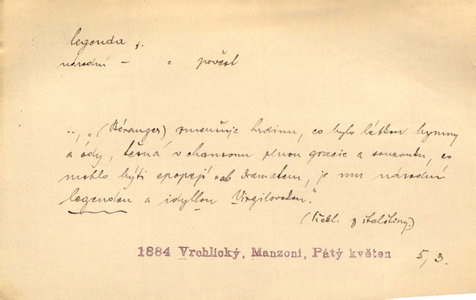 legenda, f.
národní — " pověst
„ (Béranger) zmenšuje hrdinu, co bylo látkou hymny
a ódy, těsná v chansonu plnou gracie a souzvuku, co
mohlo býti epopejí je mu národní
legendou a idyllou Virgilovskou."
(Přel. z italštiny.)
1884 Vrchlický, Manzoni, Pátý květen 5, 3.